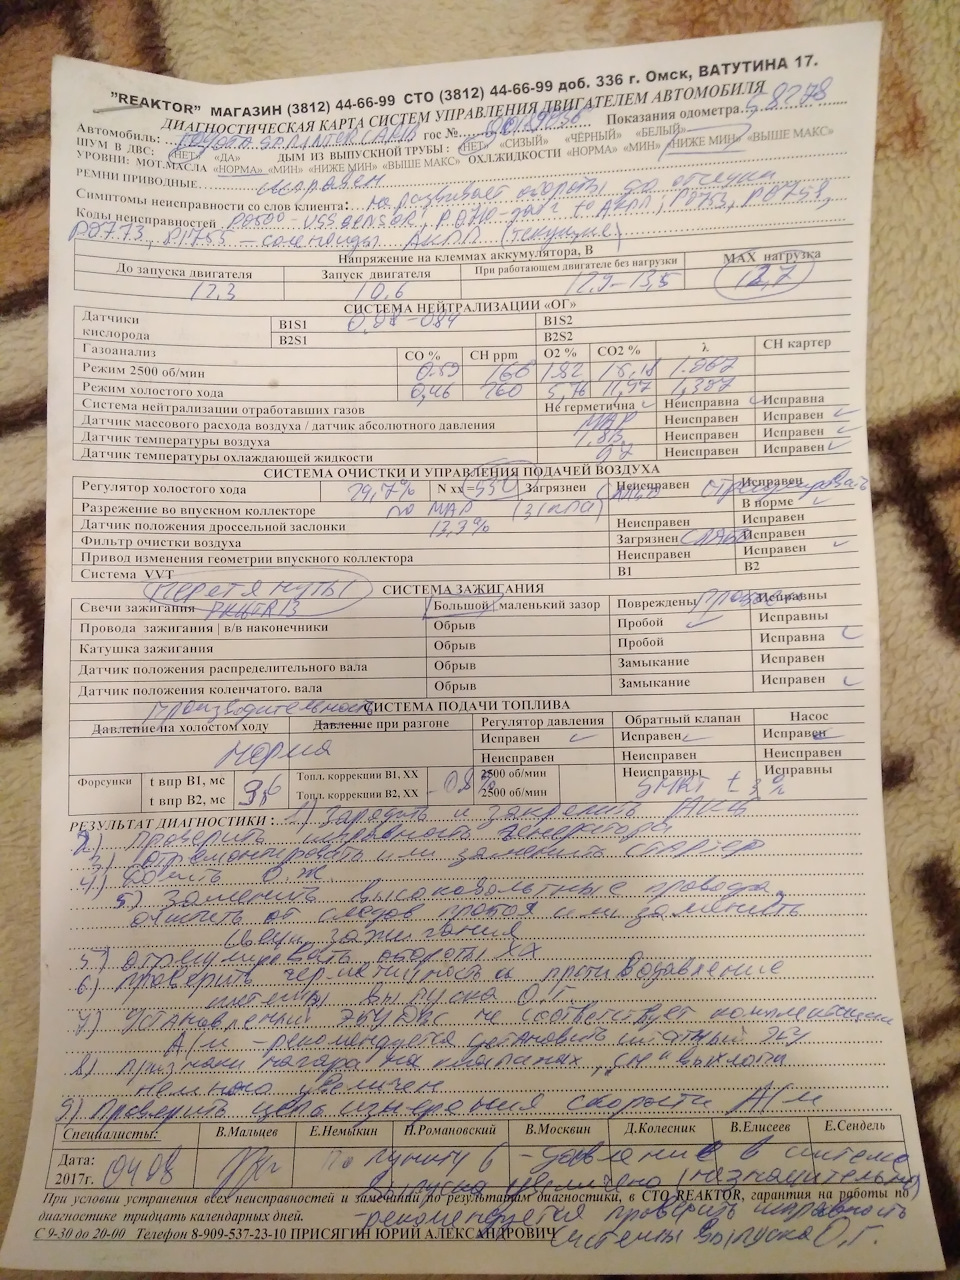 "REAKTOR" МАГАЗИН (3812) 44-66-99 СТО (3812) 44-66-99 доб. 336 г. Омск, ВАТУТИНА 17.
ДИАГНОСТИЧЕСКАЯ КАРТА СИСТЕМ УПРАВЛЕНИЯ ДВИГАТЕЛЕМ АВТОМОБИЛЯ
Автомобиль: TOYOTA SPRINTER CARIB гос № Показания одометра 58278
ШУМ В ДВС: «НЕТ» «ДА» ДЫМ ИЗ ВЫПУСКНОЙ ТРУБЫ: «НЕТ» «СИЗЫЙ» «ЧЁРНЫЙ» «БЕЛЫЙ»
УРОВНИ: МОТ.МАСЛА «НОРМА» «МИН» «НИЖЕ МИН» «ВЫШЕ МАКС» ОХЛ.ЖИДКОСТИ «НОРМА» «МИН» «НИЖЕ МИН» «ВЫШЕ МАКС»
РЕМНИ ПРИВОДНЫЕ исправен
Симптомы неисправности со слов клиента: не развивает обороты до отсечки
Коды неисправностей P0500 - VSS SENSOR; P0710 - датч to АКПП; P0753, P0758,
P0773, P1755 - соленоиды АКПП (текущие)
Напряжение на клеммах аккумулятора, В
До запуска двигателя Запуск двигателя При работающем двигателе без нагрузки МАХ нагрузка
12,3 10,6 12,9-13,5 12,7
СИСТЕМА НЕЙТРАЛИЗАЦИИ «ОГ»
Датчики кислорода B1S1 B1S2
B2S1 B2S2
Газоанализ СО % СН ppm О2 % СО2 % λ СН картер
Режим 2500 об/мин 0.59 166 1.82 15,18 1.067
Режим холостого хода 0,46 260 5,76 11,97 1,307
Система нейтрализации отработавших газов Не герметична Неисправна Исправна
Датчик массового расхода воздуха / датчик абсолютного давления MAP Неисправен Исправен
Датчик температуры воздуха 1,8В Неисправен Исправен
Датчик температуры охлаждающей жидкости 0,7 Неисправен Исправен
СИСТЕМА ОЧИСТКИ И УПРАВЛЕНИЯ ПОДАЧЕЙ ВОЗДУХА
Регулятор холостого хода 29,7% N хх =550 Загрязнен Неисправен Исправен отрегулировать
Разрежение во впускном коллекторе по MAP (31кПа) В норме
Датчик положения дроссельной заслонки 13,3% Неисправен Исправен
Фильтр очистки воздуха Загрязнен слабо Исправен
Привод изменения геометрии впускного коллектора Неисправен Исправен
Система VVT B1 B2
перетянуты СИСТЕМА ЗАЖИГАНИЯ
Свечи зажигания Большой | маленький зазор Повреждены Исправны
Провода зажигания | в/в наконечники Обрыв Пробой Исправны
Катушка зажигания Обрыв Пробой Исправна
Датчик положения распределительного вала Обрыв Замыкание Исправен
Датчик положения коленчатого. вала Обрыв Замыкание Исправен
Производительность СИСТЕМА ПОДАЧИ ТОПЛИВА
Давление на холостом ходу Давление при разгоне Регулятор давления Обратный клапан Насос
Норма Исправен Исправен Исправен
Неисправен Неисправен Неисправен
Форсунки t впр B1, мс 3,6 Топл. коррекции B1, ХХ 2500 об/мин Неисправны Исправны
t впр B2, мс Топл. коррекции B2, ХХ 2500 об/мин SMRT ± 3 %
РЕЗУЛЬТАТ ДИАГНОСТИКИ: 1) зарядить и закрепить АКБ
2) проверить исправность генератора
3) отремонтировать или заменить стартер
4) Долить О.Ж.
5) заменить высоковольтные провода,
очистить от следов пробоя или заменить
свечи зажигания
5) отрегулировать обороты ХХ
6) проверить герметичность и противодавление
системы выпуска О.Г.
7) Установленный ЭБУ ДВС не соответствует комплектации
А/м - рекомендуется установить штатный ЭБУ
8) признаки нагара на клапанах, "СН" выхлопа
немного увеличен
9) проверить цепь измерения скорости А/м
Специалисты: В.Мальцев Е.Немыкин П.Романовский В.Москвин Д.Колесник В.Елисеев Е.Сендель
Дата: 04 08 По пункту 6 - давление в системе
2017г. выпуска увеличено (незначительно)
При условии устранения всех неисправностей и замечаний по результатам диагностики, в СТО REAKTOR, гарантия на работы по
диагностике тридцать календарных дней. - рекомендуется проверить исправность
С 9-30 до 20-00 Телефон 8-909-537-23-10 ПРИСЯГИН ЮРИЙ АЛЕКСАНДРОВИЧ системы выпуска О.Г.